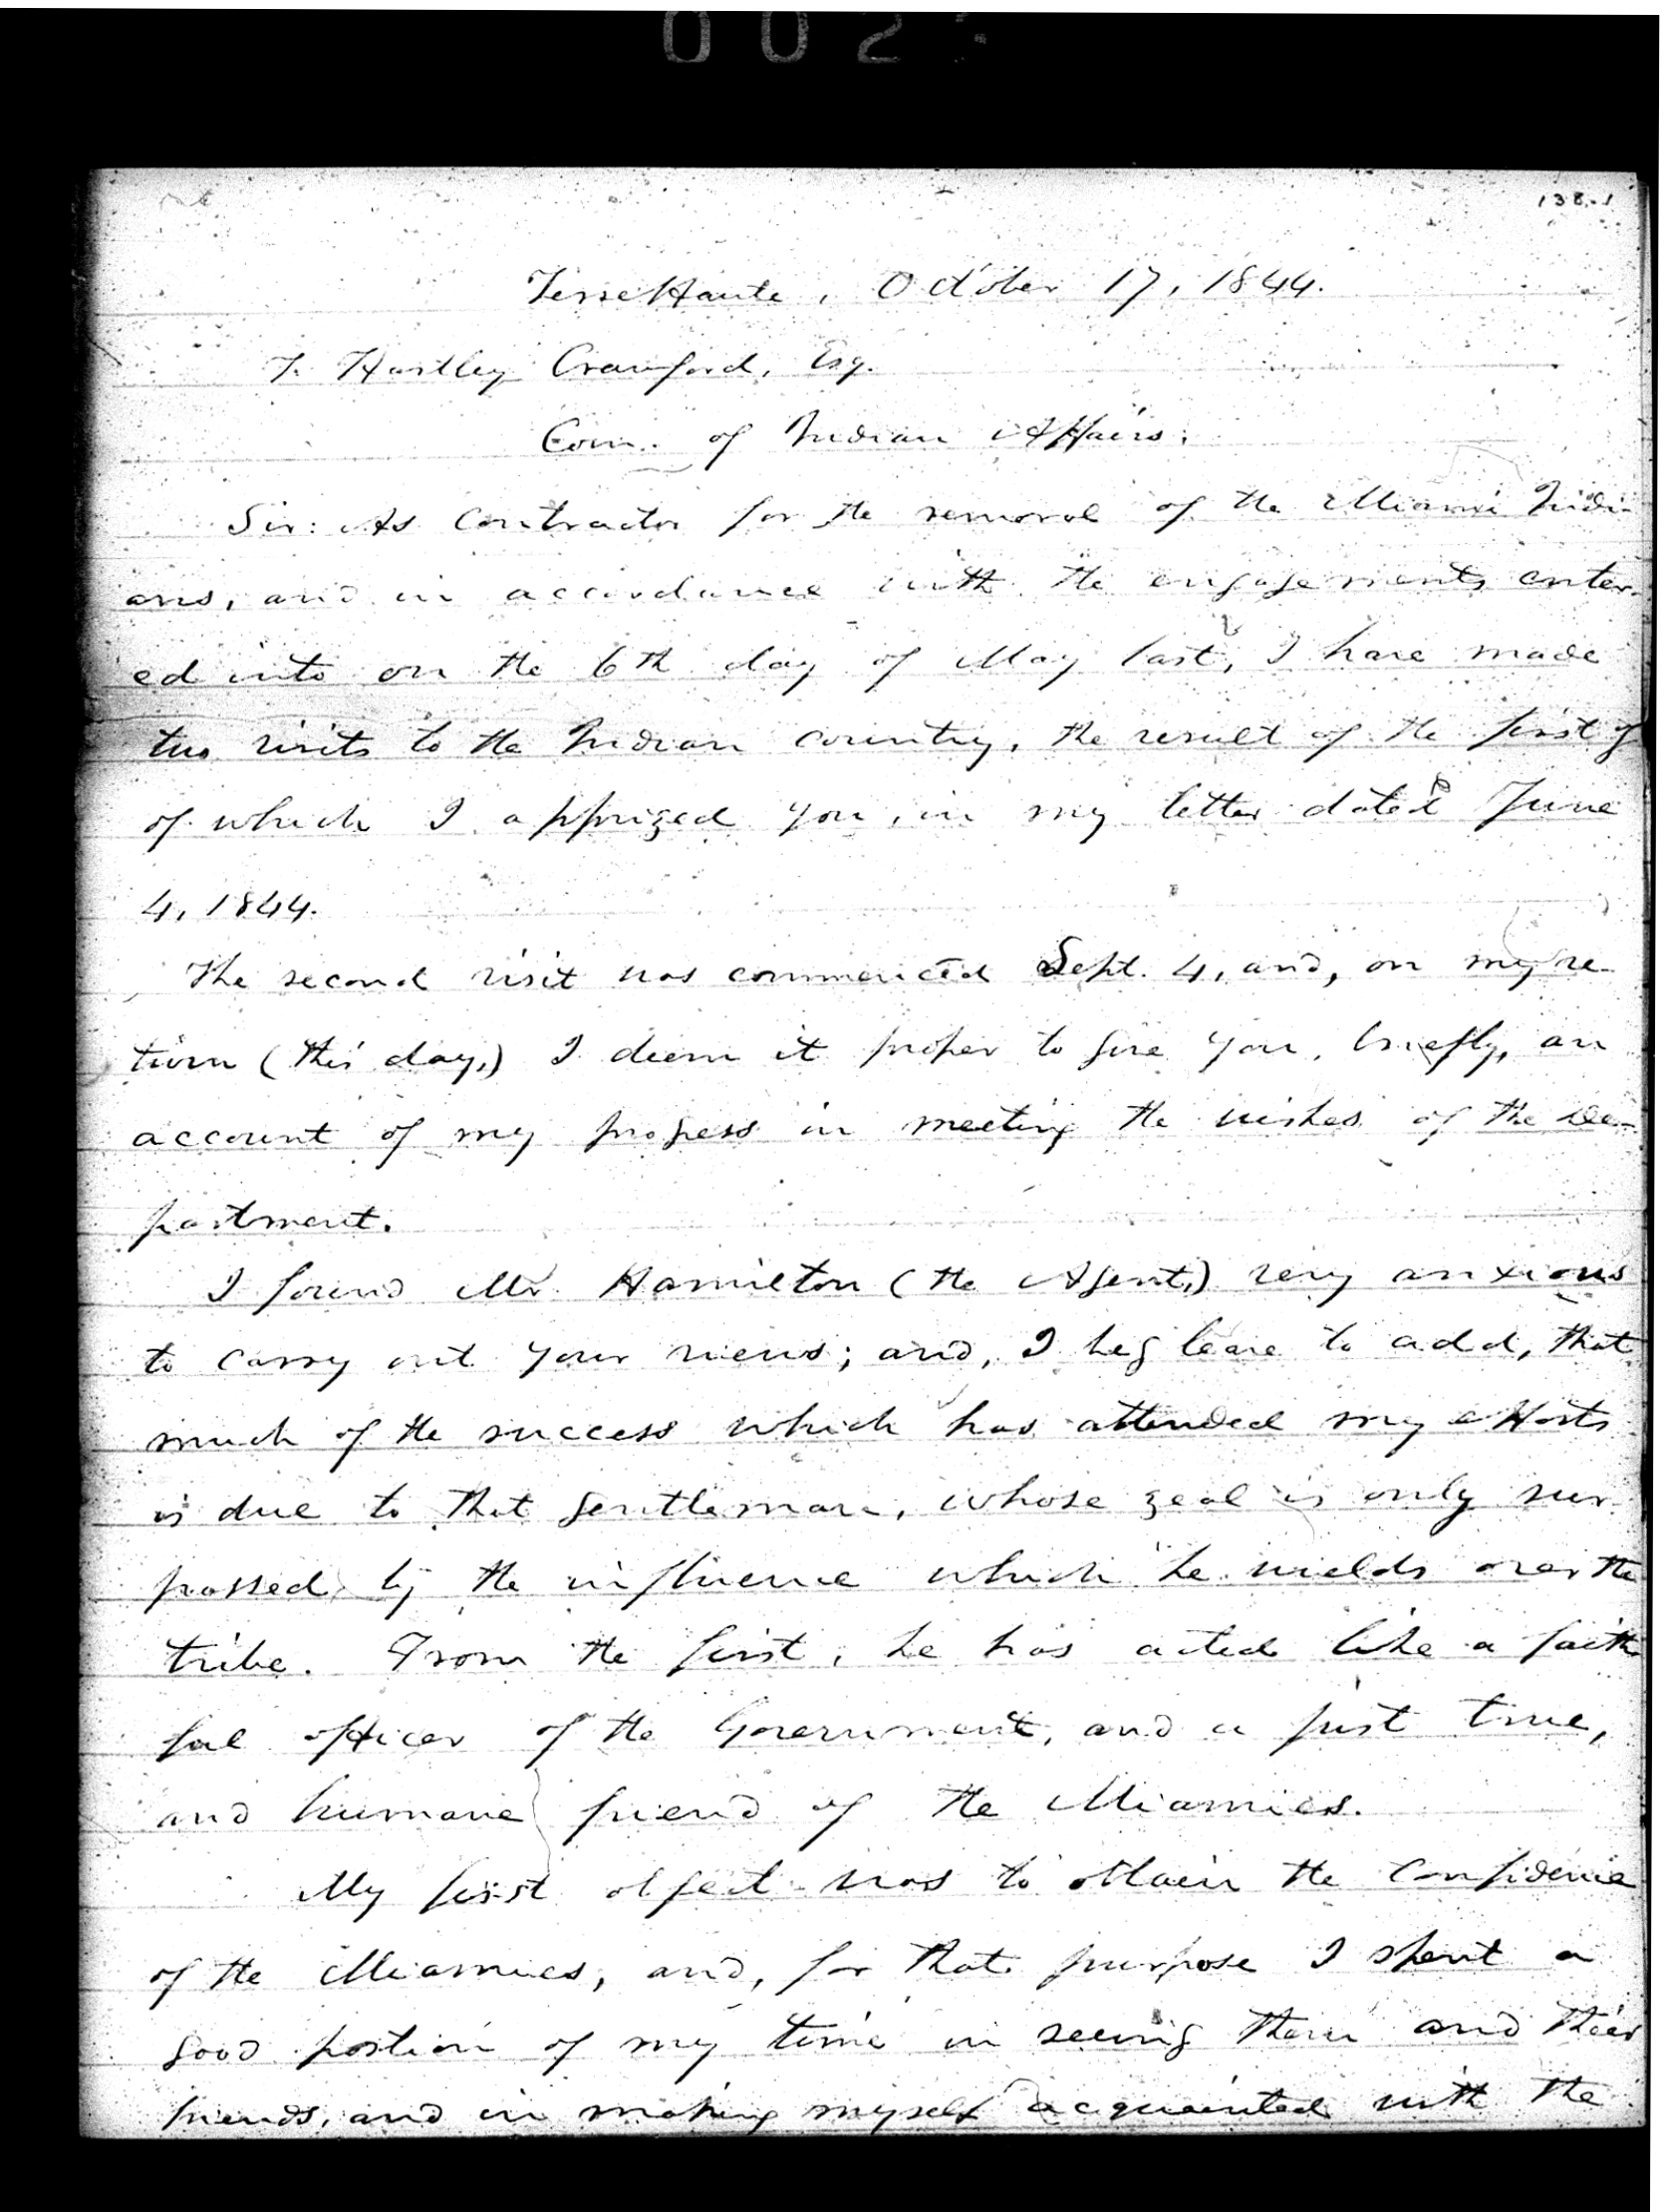 002
138-1
TerreHaute, October 17, 1844.
T. Hartley Crawford, Esq.
Com. of Indian Affairs:
Sir: As Contractor for the removal of the Miami Indi-
ans, and in accordance with the engagements enter-
ed into on the 6th day of May last, I have made
two visits to the Indian country, the result of the first of
of which I apprized you, in my letter dated June
4, 1844.
The second visit was commenced Sept. 4, and, on my re-
turn (this day,) I deem it proper to give you, briefly, an
account of my progress in meeting the wishes of the De-
partment.
I found Mr. Hamilton (the Agent,) very anxious
to carry out your views; and, I beg leave to add, that
much of the success which has attended my efforts
is due to that gentleman, whose zeal is only sur-
passed by the influence which he wields over the
tribe. From the first, he has acted like a faith-
ful officer of the Government, and a just true,
and humane friend of the Miamies.
My first object was to obtain the confidence
of the Miamies, and, for that purpose I spent a
good portion of my time in seeing them and their
friends, and in making myself acquainted with the